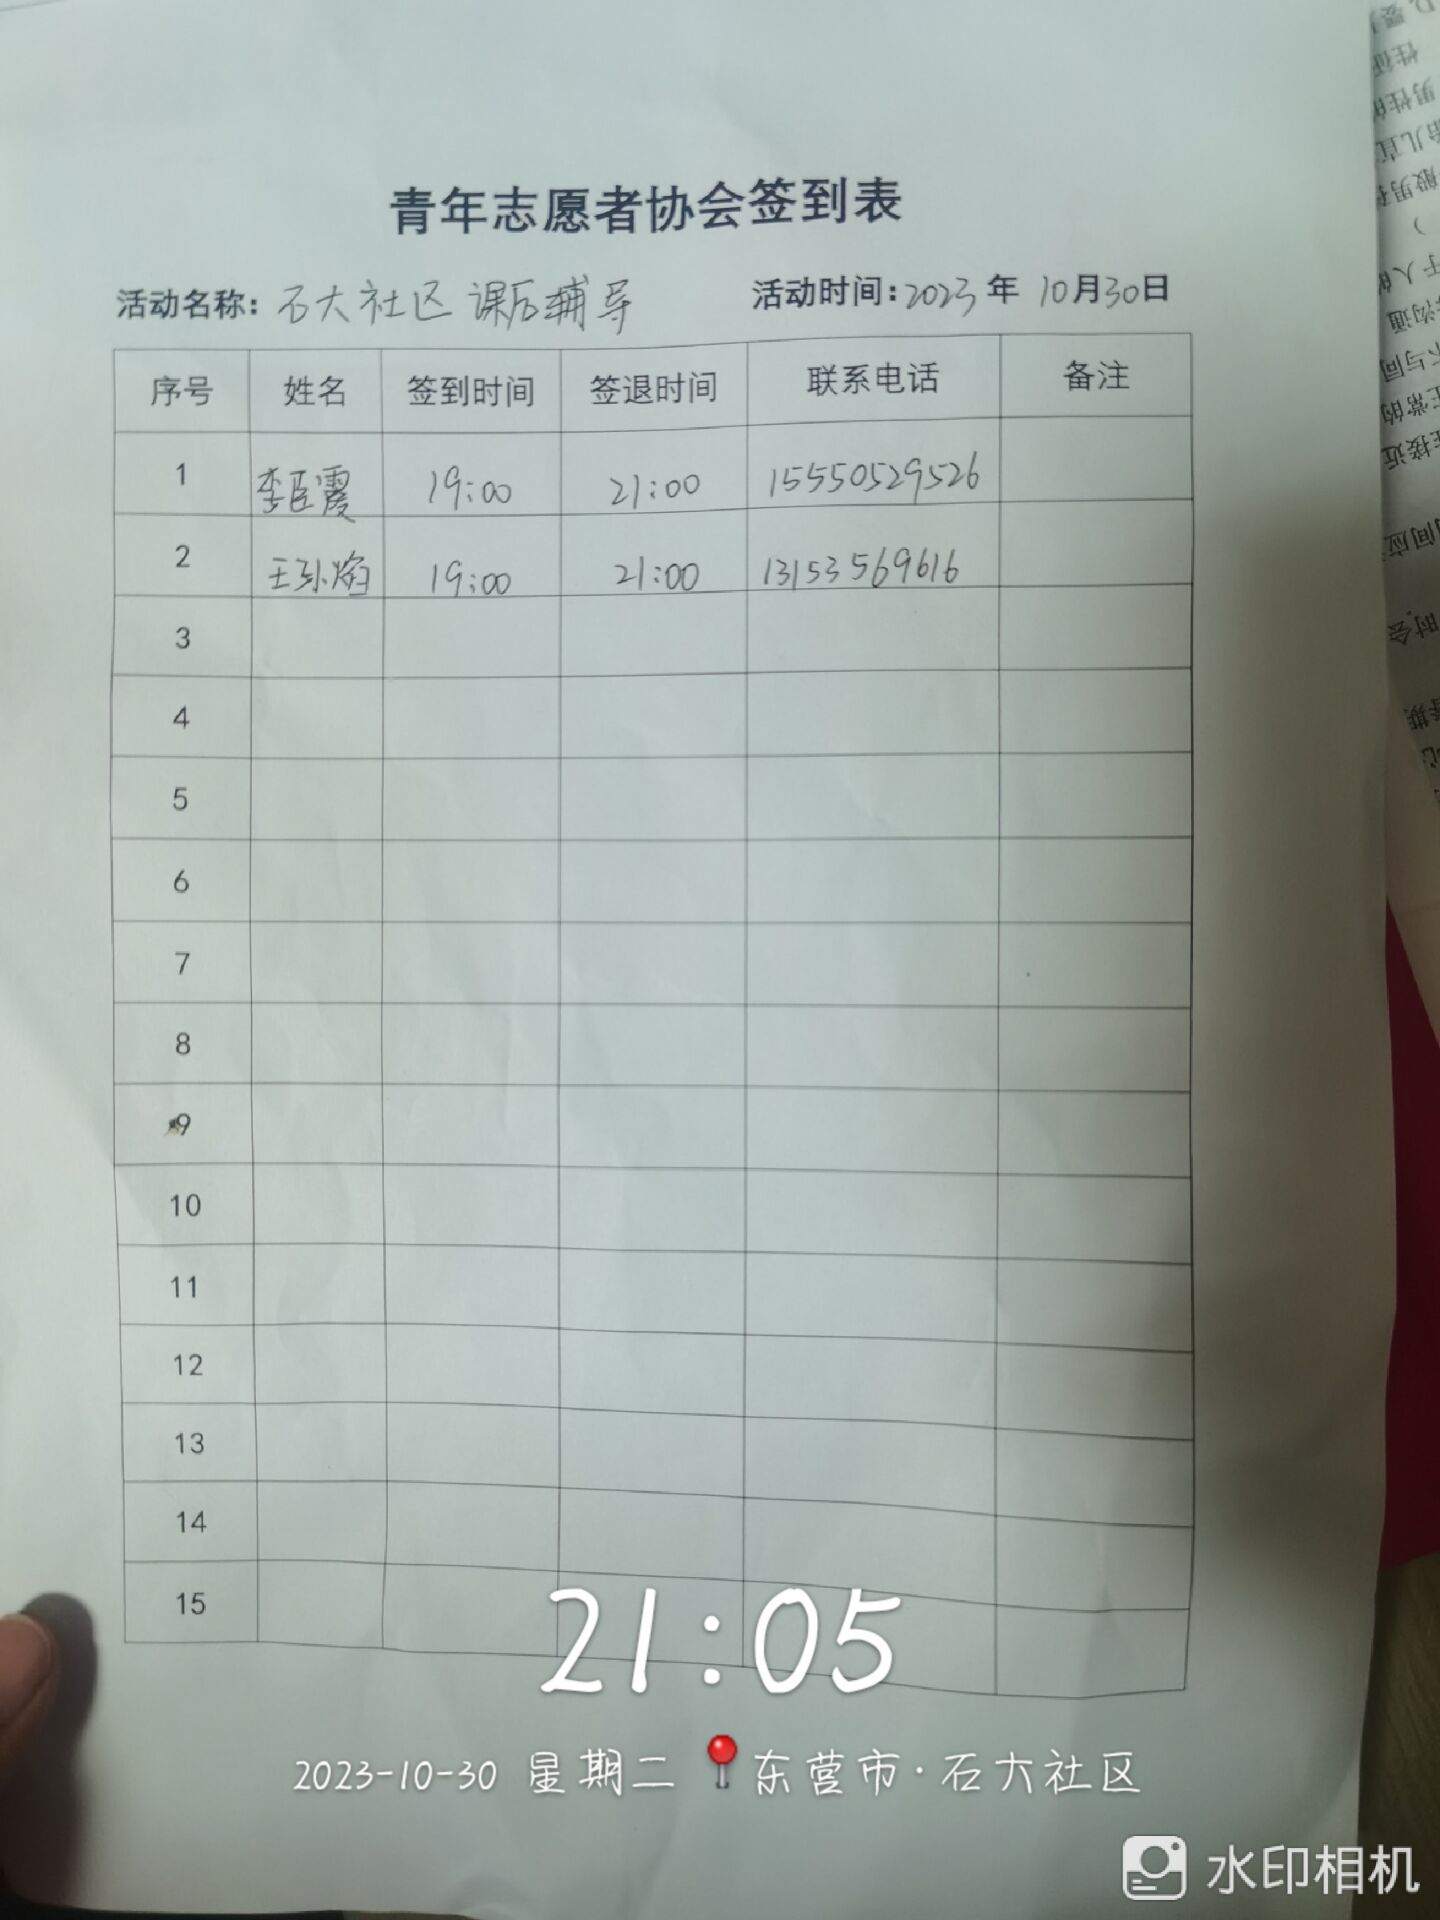 青年志愿者协会签到表
活动名称：石大社区 课后辅导 活动时间：2023年 10月30日
序号 姓名 签到时间 签退时间 联系电话 备注
1 李臣霞 19:00 21:00 15550529526
2 王孙焰 19:00 21:00 13153569616
3
4
5
6
7
8
9
10
11
12
13
14
15
21:05
2023-10-30 星期二 东营市·石大社区
水印相机